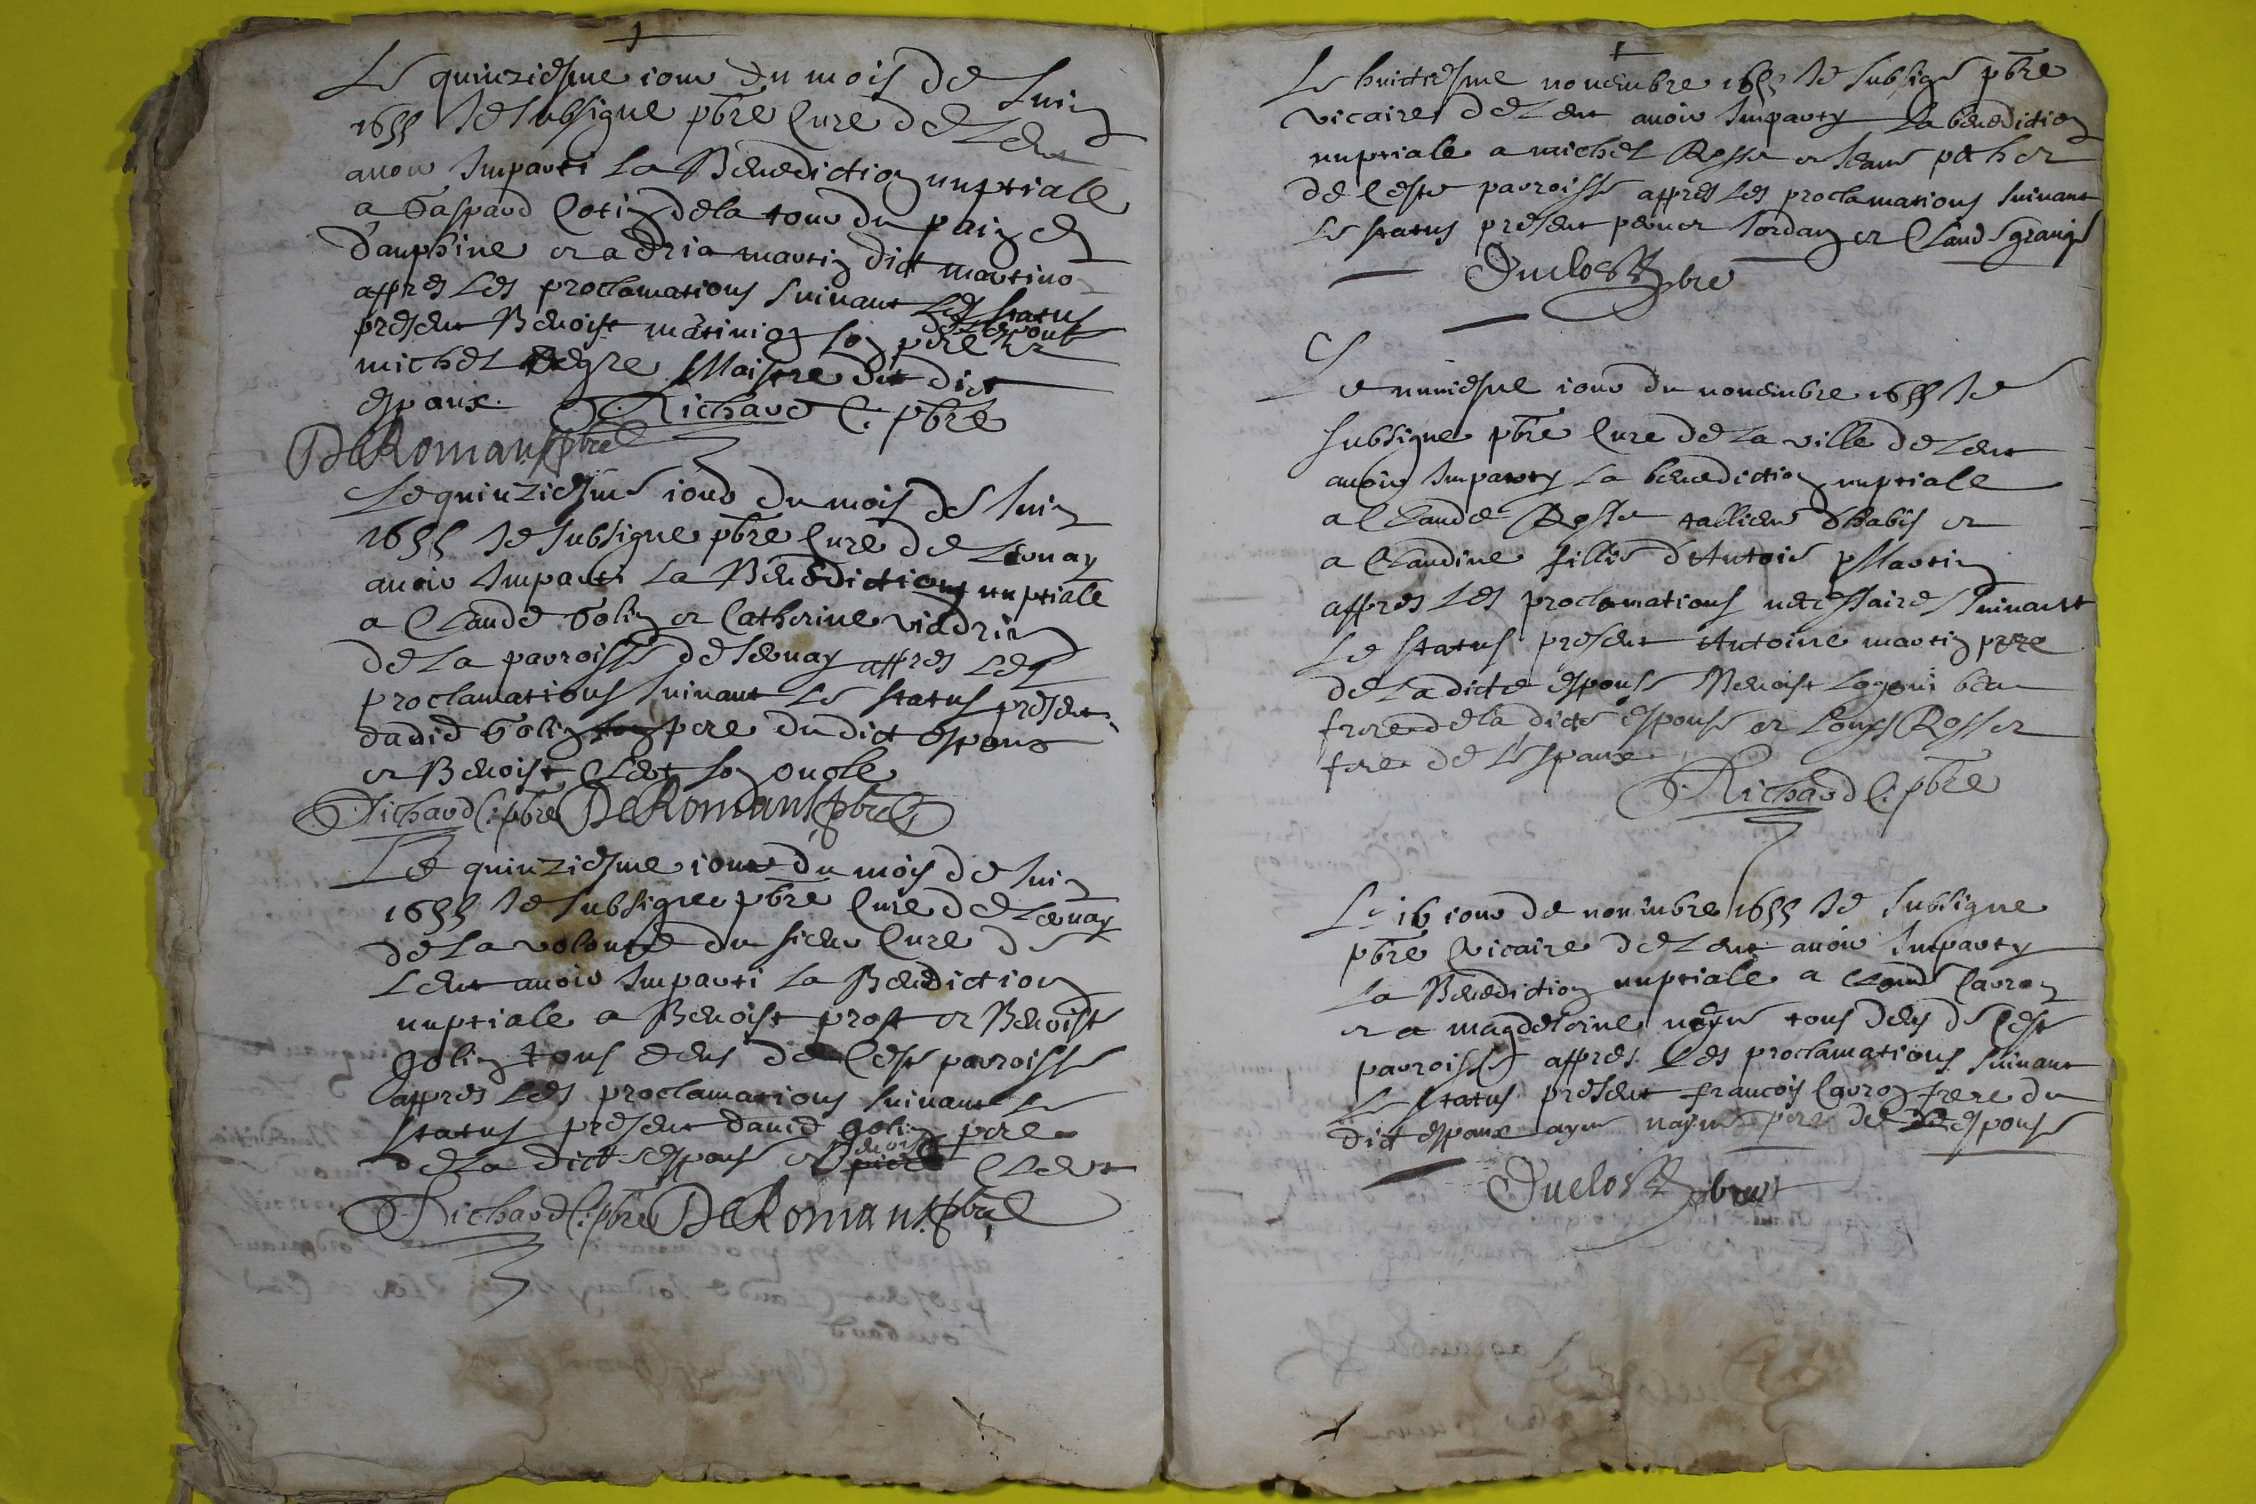 Le quinziesme iour du mois de Iuin
1655 Ie subsigne pbre Cure de Lent
auoir Imparti la Benediction nuptiale
a Gaspard Cotin de la tour du pain en
Dauphine et a dria martin dict martino
appres les proclamations suiuant les status
present Benoist son pere et
michel Maistre dict
espoux. Richard C. pbre
DeRomans pbre
Le quinziesme iour du mois de Iuin
1655 Ie subsigne pbre Cure de Seruay
auoir Imparti la Benediction nuptiale
a Claude Golin et Catherine viadrin
de la parroisse de Seruay appres les
proclamations suiuant le status present
dauid Golin pere du dict Espoux
et Benoist Clert son oncle
Richard C. pbre DeRomans pbre
Le quinziesme iour du mois de Iuin
1655 Ie subsigne pbre Cure de Seruay
de la volonte du sieur Cure de
Lent auoir Imparti la Benediction
nuptiale a Benoist prost et Benoiste
golin tous deus de Ceste parroisse
appres les proclamations suiuant le
status present dauid golin pere
de la dicte espouse et Benoist Clert
Richard C. pbre DeRomans pbre
Le huictiesme nouembre 1655 Ie subsigne pbre
vicaire de Lent auoir Imparty La benediction
nuptiale a michel Rosset et
de Ceste parroisse appres les proclamations suiuant
le status present Iordan et Claude grange
Duclos pbre
Le nuuiesme iour du nouembre 1655 Ie
subsigne pbre Cure de La ville de Lent
auoir Imparty La benediction nuptiale
a Claude Rosset tallieur dhabis et
a Claudine fillie d'Antoine Martin
appres les proclamations necessaires suiuant
le status present Antoine martin pere
de La dicte espouse Benoist beau
frere de la dicte espouse et Louys Rosset
frere de l'espoux
Richard C. pbre
Le 16 iour de nouembre 1655 Ie subsigne
pbre vicaire de Lent auoir Imparty
La Benediction nuptiale a Claude Carron
et a magdeleine tous deus de Ceste
parroisse appres les proclamations suiuant
le status present francois Carron frere du
dict espoux pere de espouse
Duclos pbre